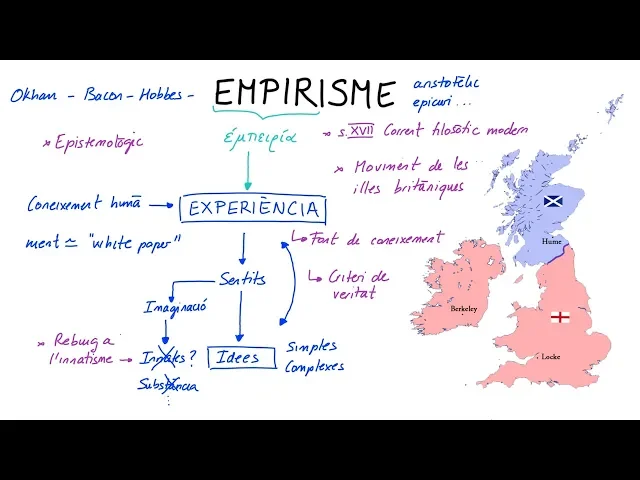 Okham - Bacon - Hobbes - EMPIRISME
aristotèlic
epicuri ...
* Epistemològic
ἐμπειρία
* s. XVII Corrent filosòfic modern
* Moviment de les
illes britàniques
Coneixement humà → EXPERIÈNCIA
ment ≃ "white paper"
↳ Font de coneixement
↳ Criteri de
veritat
Sentits
Imaginació
* Rebuig a
l'innatisme →
Innates?
Substància
⋮
Idees
Simples
Complexes
Hume
Berkeley
Locke